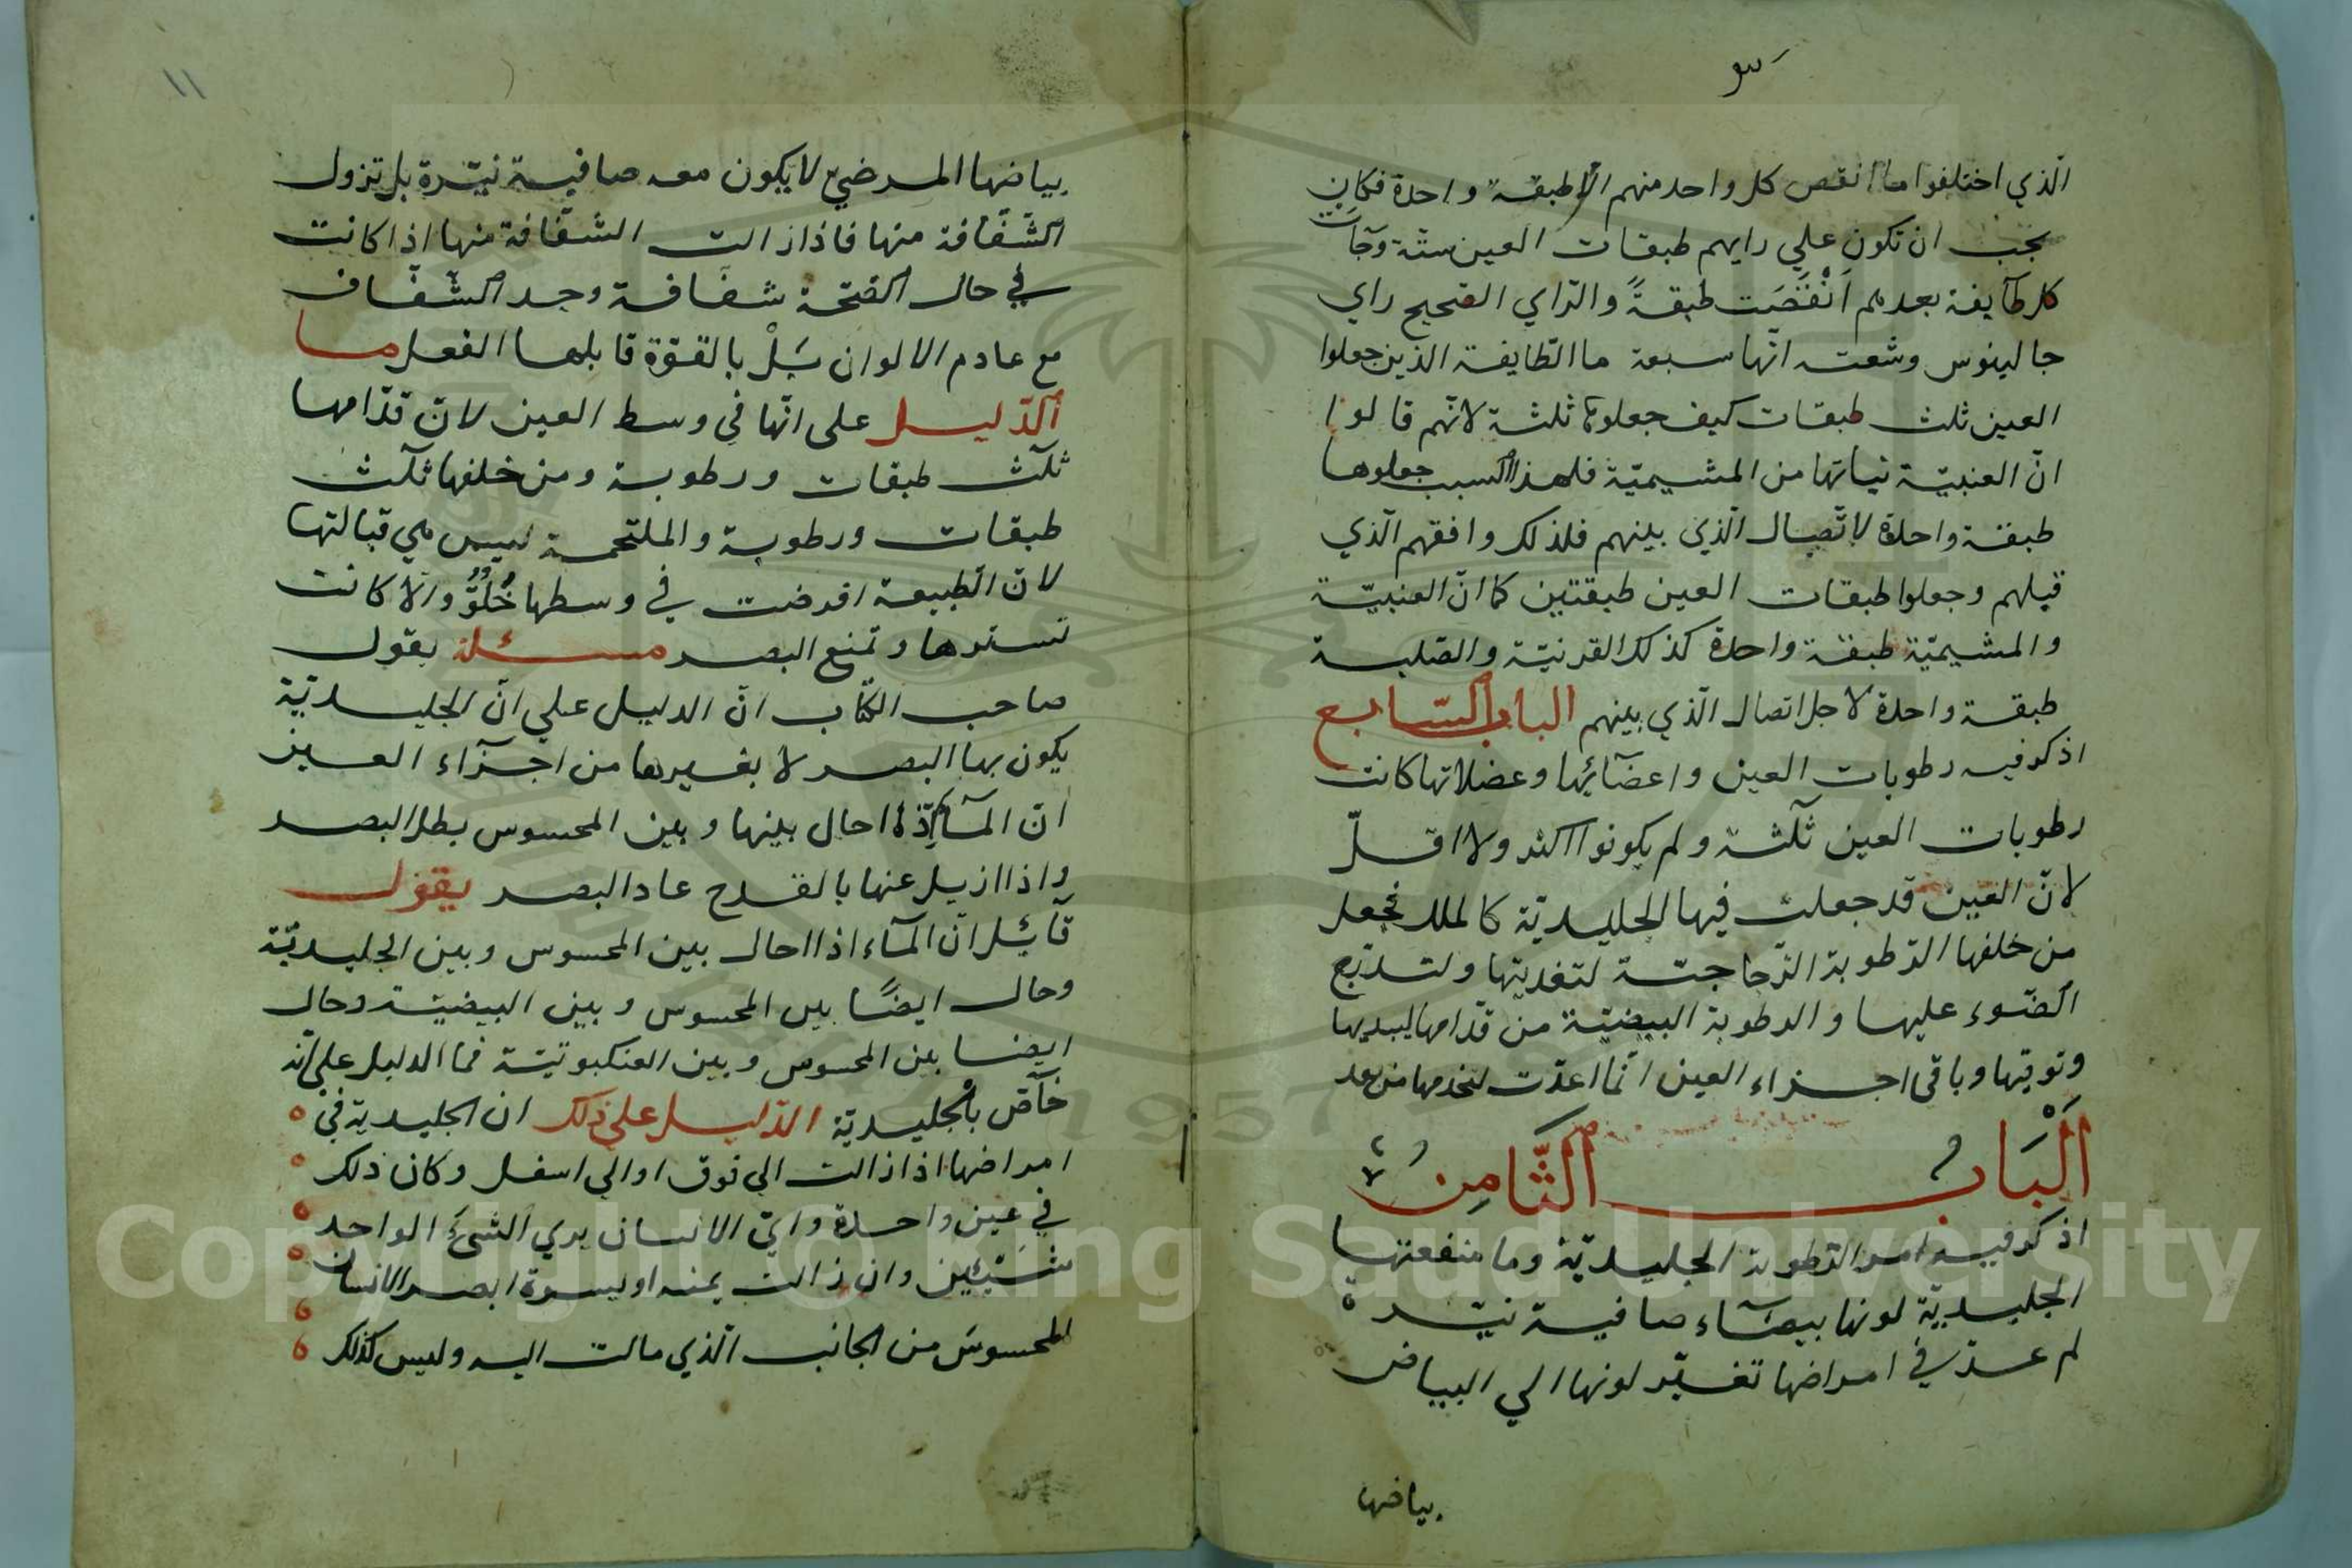 الّذي اختلفوا ما انقص كل واحد منهم الا طبقة واحدة فكان
يجب ان تكون علي رايهم طبقات العين ستّة وجآت
كل طآيفة بعدهم اَنْقَصَت طبقةً والرّاي الصّحيح راي
جالينوس وشعته انّها سبعة ما الطّايفة الذين جعلوا
العين ثلث طبقات كيف جعلوها ثلثة لانّهم قالوا
انّ العنبيّة نباتها من المشيميّة فلهذا السبب جعلوها
طبقة واحدة لاتّصال الّذي بينهم فلذلك وافقهم الّذي
قبلهم وجعلوا طبقات العين طبقتين كما انّ العنبيّة
والمشيميّة طبقة واحدة كذلك القرنيّة والصّلبة
طبقة واحدة لاجل اتصال الّذي بينهم الباب السّابع
اذكر فيه رطوبات العين واعضآئها وعضلاتها كانت
رطوبات العين ثلثة ولم يكونوا اكثر ولا اقلّ
لانّ العين قد جعلت فيها الجليديّة كالملك فجعل
من خلفها الرّطوبة الزّجاجيّة لتغديتها ولتدرّج
الضّوء عليها والرطوبة البيضيّة من قدّامها ليبديها
وتوقيها وباقي اجزاء العين انّما اعدّت لتخدمها من بعد
اَلْبَابُ الثَّامِنُ
اذكر فيه امر الرّطوبة الجليديّة وما منفعتها
الجليديّة لونها بيضآء صافية نيّرة
لم عدّ في امراضها تغيّر لونها الي البياض
بياضها
١١
بياضها المرضيّ لا يكون معه صافية نيّرة بل تزول
الشّفّافة منها فاذا زالت الشّفّافة منها اذا كانت
في حال الصّحّة شفّافة وجد الشّفّاف
مع عادم الالوان بَلْ بالقوّة قابلها الفعل ما
الدّليل على انّها في وسط العين لانّ قدّامها
ثلآث طبقات ورطوبة ومن خلفها ثلآث
طبقات ورطوبة والملتحمة ليس هي قبالتها
لانّ الطّبيعة افرضت في وسطها خُلُوٌّ والّا كانت
تسترها وتمنع البصر مسئلة يقول
صاحب الكتاب انّ الدليل علي انّ الجليديّة
يكون بها البصر لا بغيرها من اجزآء العين
انّ المآء اذا احال بينها وبين المحسوس بطل البصر
واذا ازيل عنها بالقدح عاد البصر يقول
قآئل انّ المآء اذا احال بين المحسوس وبين الجليديّة
وحال ايضًا بين المحسوس وبين البيضيّة وحال
ايضا بين المحسوس وبين العنكبوتيّة فما الدليل على انّه
خآصّ بالْجليديّة الدّليل على ذلك ان الجليدية في
امراضها اذا زالت الي فوق او الي اسفل وكان ذلك
في عين واحدة رايّ الانسان يري الشّئَ الواحد
شَيْئين وان زالت يمنه او يسرة ابصر الانسان
المحسوسَ من الجانب الّذي مالت اليه وليس كذلك
Copyright © King Saud University
1957